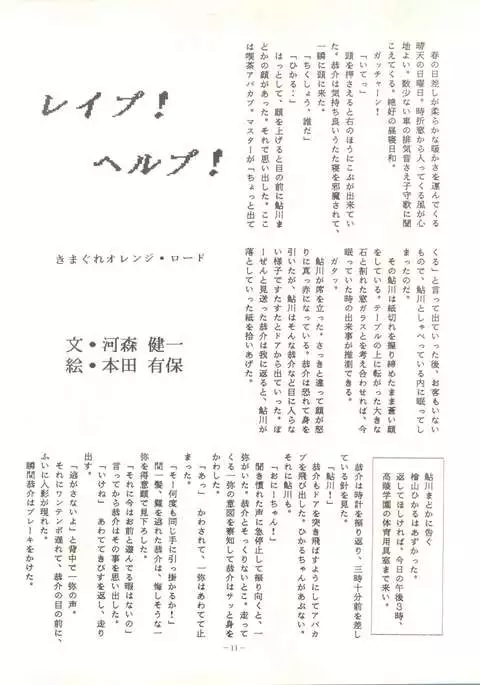 レイプ！
ヘルプ！
きまぐれオレンジ・ロード
文・河森 健一
絵・本田 有保
春の日差しが柔らかな暖かさを運んでくる
晴天の日曜日。時折窓から入ってくる風が心
地よい。数少ない車の排気音さえ子守歌に聞
こえてくる。絶好の昼寝日和。
ガッチャーン！
「いてっ」
頭を押さえると右のほうにこぶが出来てい
た。恭介は気持ち良いうたた寝を邪魔されて、
一瞬に頭に来た。
「ちくしょう、誰だ」
「ひかる…」
はっとして、顔を上げると目の前に鮎川ま
どかの顔があった。それで思い出した。ここ
は喫茶アバカブ。マスターが「ちょっと出て
くる」と言って出ていった後、お客もいない
もので、鮎川としゃべっている内に眠ってし
まったのだ。
その鮎川は紙切れを握り締めたまま蒼い顔
をしている。テーブルの上に転がった大きな
石と割れた窓ガラスとを考え合わせれば、今
眠っていた時の出来事が推測できる。
ガタッ。
鮎川が席を立った。さっきと違って顔が怒
りに真っ赤になっている。恭介は恐れて身を
引いたが、鮎川はそんな恭介など目に入らな
い様子ですたすたとドアから出ていった。ぼ
ーぜんと見送った恭介は我に返ると、鮎川が
落としていった紙を拾いあげた。
鮎川まどかに告ぐ
檜山ひかるはあずかった。
返してほしければ、今日の午後3時、
高陵学園の体育用具室まで来い。
恭介は時計を振り返り、三時十分前を差し
ている針を見た。
「鮎川！」
恭介もドアを突き飛ばすようにしてアバカ
ブを飛び出した。ひかるちゃんがあぶない。
それに鮎川も。
「おにーちゃん！」
聞き慣れた声に急停止して振り向くと、一
弥がいた。恭介とそっくりないとこ。走って
くる一弥の意図を察知して恭介はサッと身を
かわした。
「あっ」 かわされて、一弥はあわてて止
まった。
「そー何度も同じ手に引っ掛かるか！」
間一髪、難を逃れた恭介は、悔しそうな一
弥を得意顔で見下ろした。
「それに今はお前と遊んでる暇はないの」
言ってから恭介はその事を思い出した。
「いけね」 あわててきびすを返し、走り
出す。
「逃がさないよ」と背中で一弥の声。
それにワンテンポ遅れて、恭介の目の前に、
ふいに人影が現れた。
瞬間恭介はブレーキをかけた。
－11－